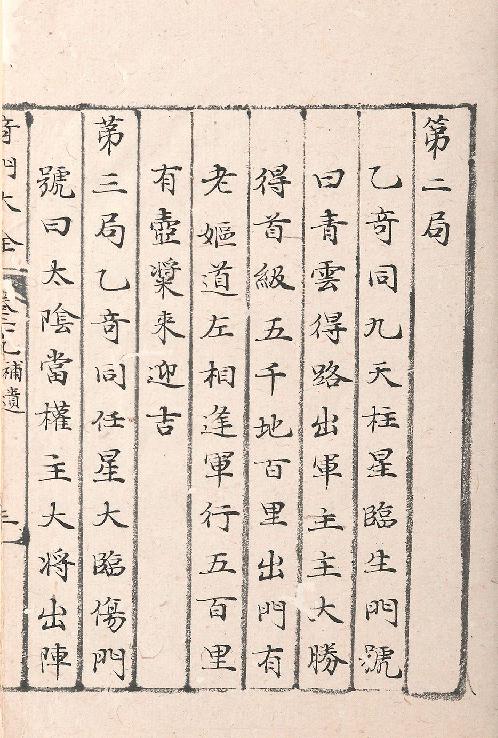 第二局
乙奇同九天柱星臨生門號
曰青雲得路出軍主主大勝
得首級五千地百里出門有
老嫗道左相逢軍行五百里
有壺漿来迎吉
第三局乙奇同任星大臨傷門
號曰太陰當權主大将出陣
奇門大全
卷三十九補遺